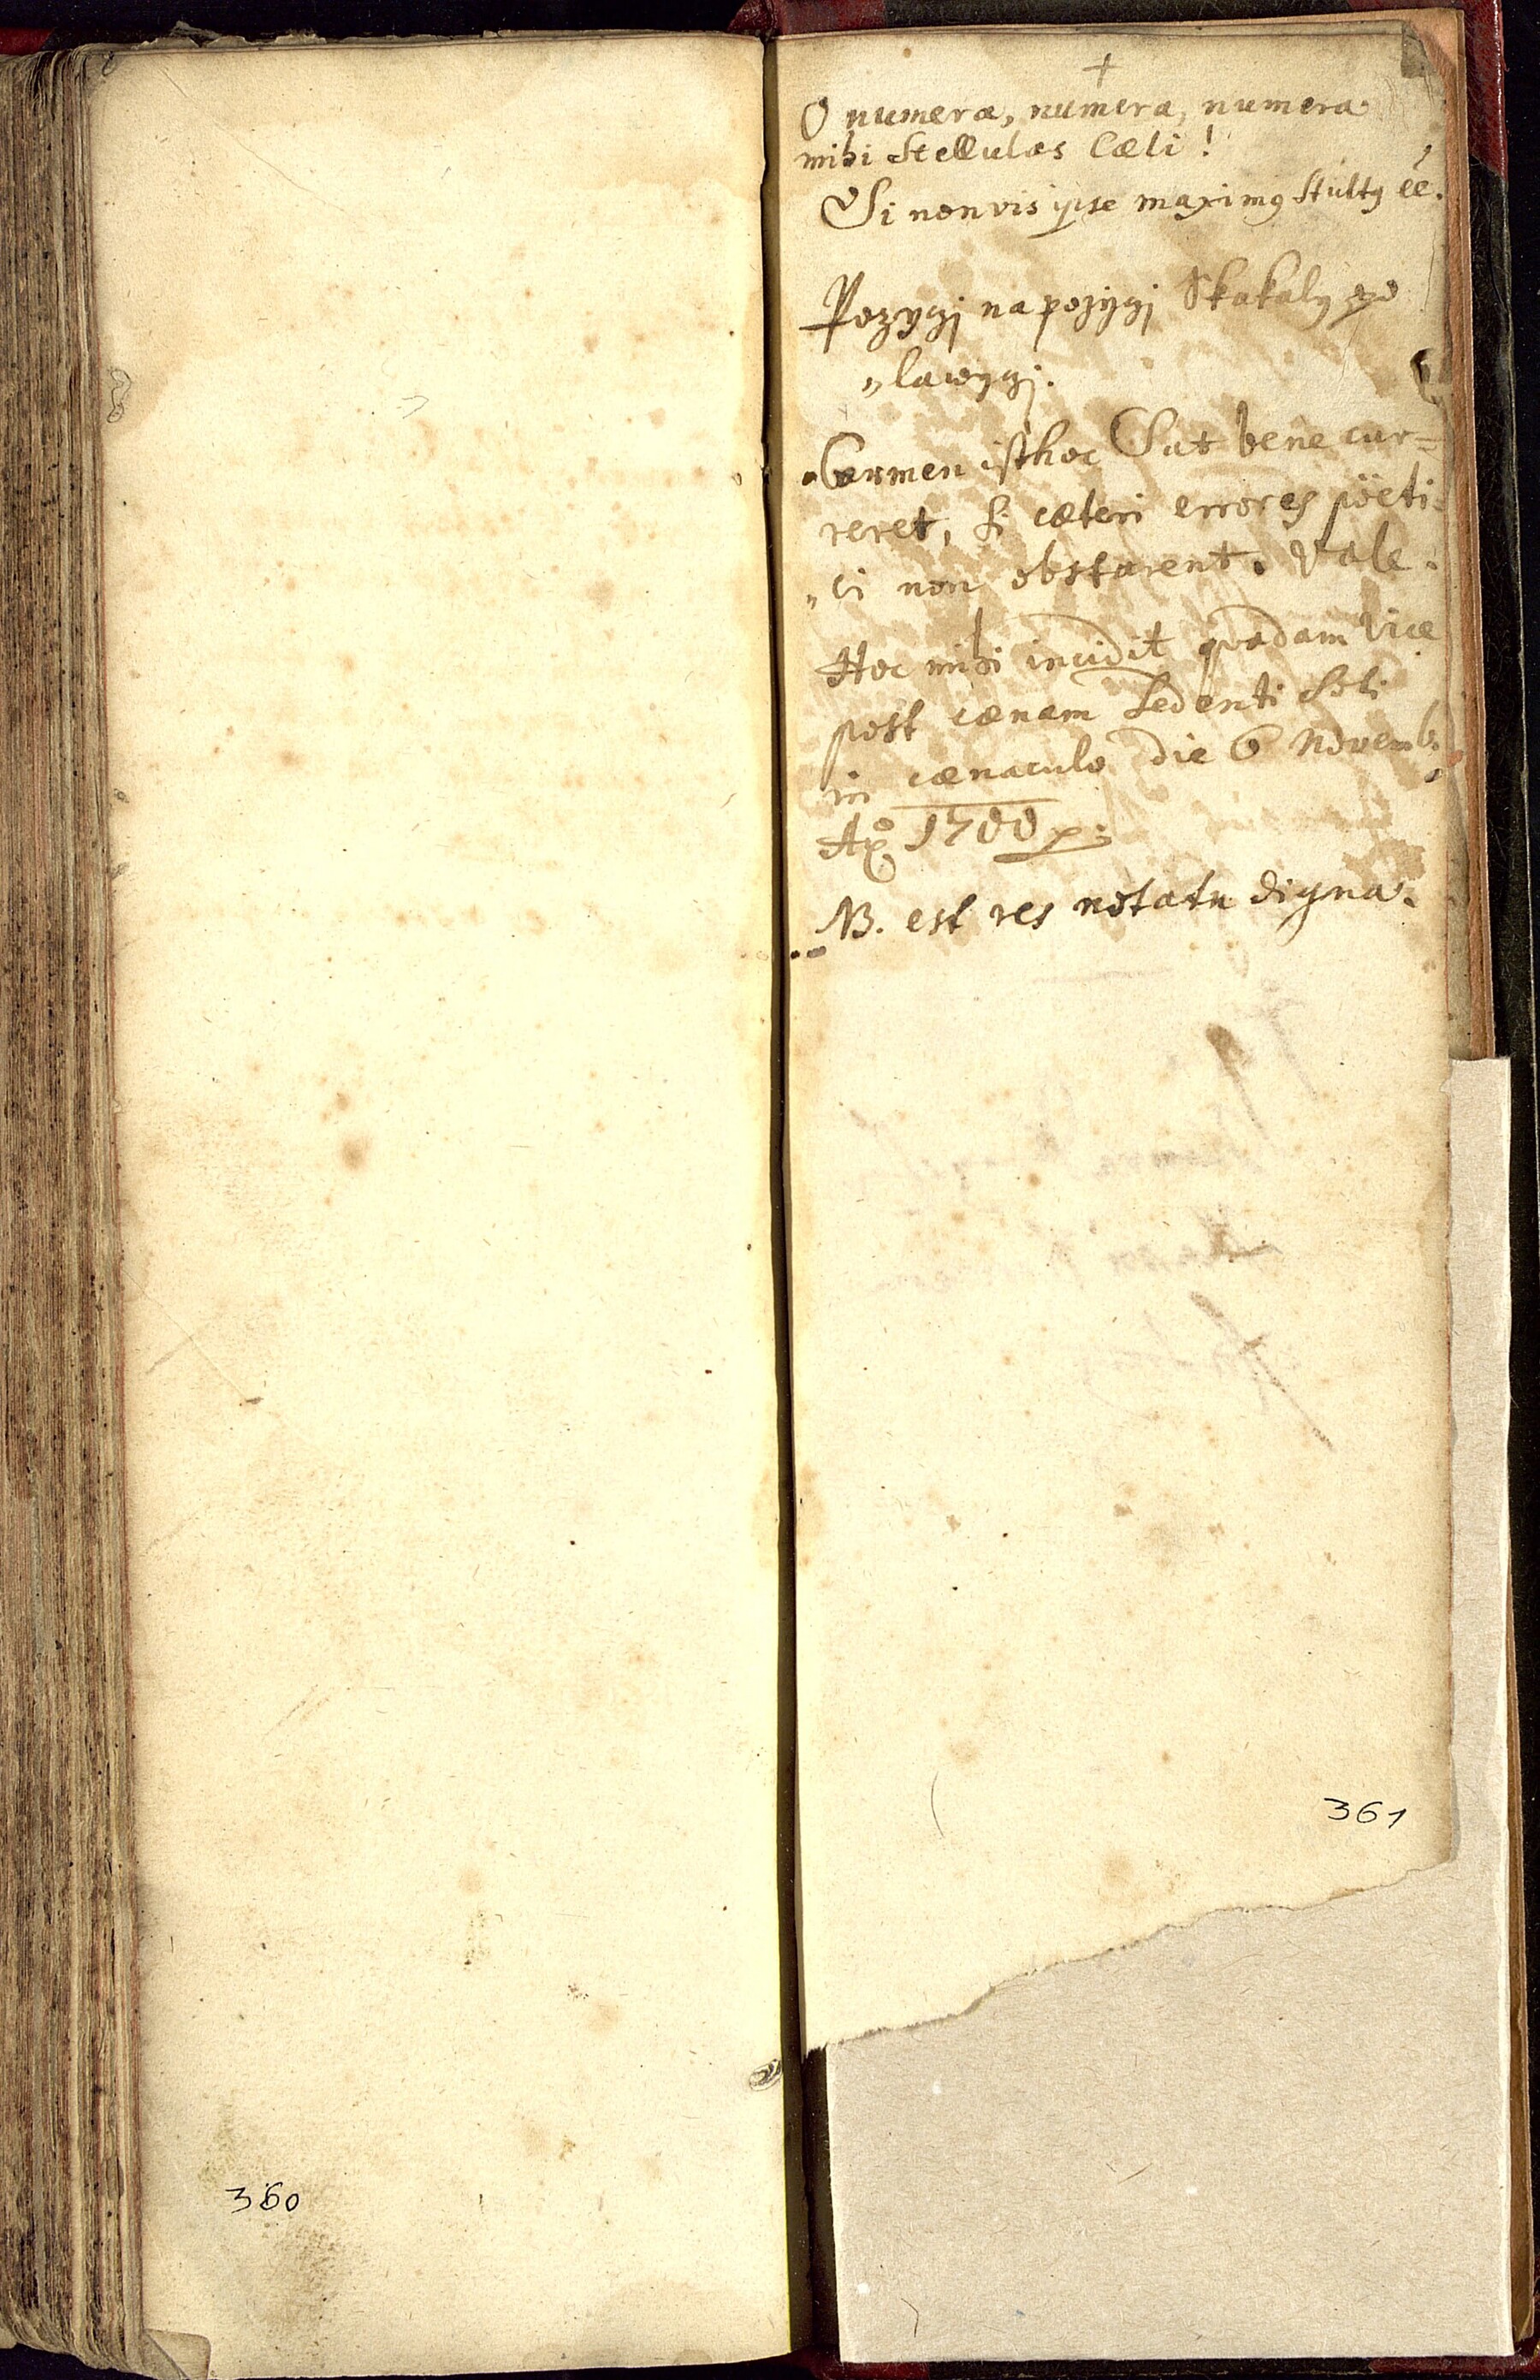 O numera, numera, numera
mihi Stellulas Cæli!
Si non vis ipse maximꝰ Stultꝰ ee.
Pozygj na pozygj Skakaly po
„lawygj.
Carmen isthoc Sat bene cur=
reret, si cæteri errores pöeti
„ci non obstarent. Vale.
Hoc mihi incidit quadam vice
post cænam Sedenti Soli
in cænaculo die 6 Novemb.
Aō 1700
NB. est res notatu digna.
361
360